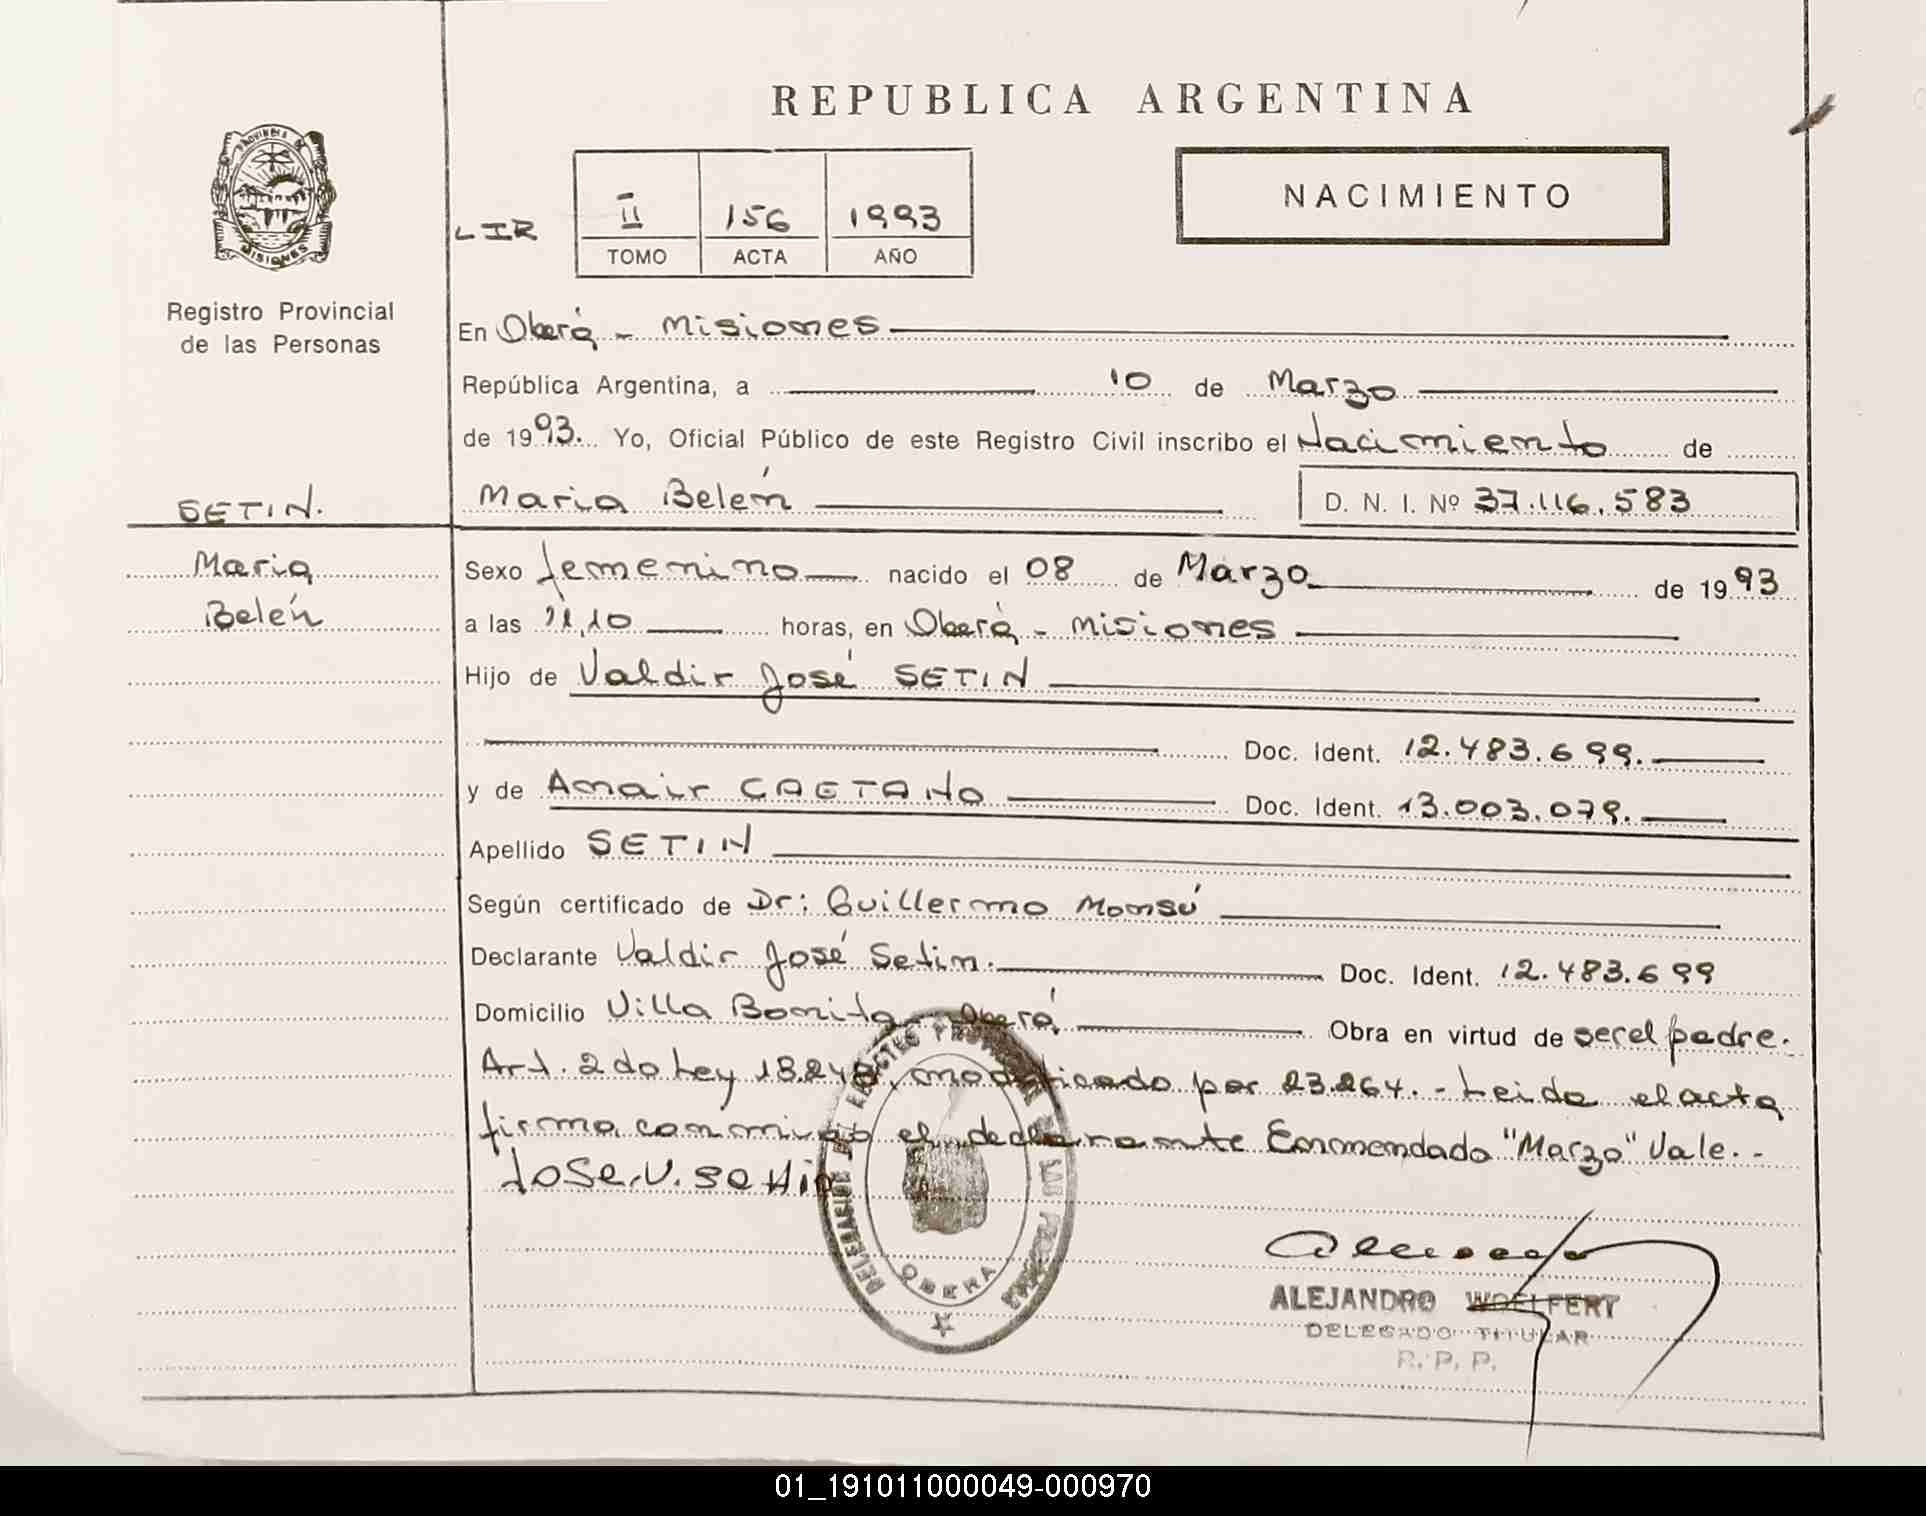 REPUBLICA ARGENTINA
PROVINCIA DE
MISIONES
Registro Provincial
de las Personas
LIR
II 156 1993
TOMO ACTA AÑO
NACIMIENTO
En Oberá - Misiones
República Argentina, a 10 de Marzo
de 1993. Yo, Oficial Público de este Registro Civil inscribo el Nacimiento de
SETIN.
Maria Belén D. N. I. Nº 37.116.583
Maria
Belén
Sexo femenino nacido el 08 de Marzo de 1993
a las 11,10 horas, en Oberá - Misiones
Hijo de Valdir José SETIN
Doc. Ident. 12.483.699.
y de Amair CAETANO Doc. Ident. 13.003.079.
Apellido SETIN
Según certificado de Dr: Guillermo Monsú
Declarante Valdir José Setin. Doc. Ident. 12.483.699
Domicilio Villa Bonita - Oberá Obra en virtud de ser el padre.
Art. 2do Ley 18.248, modificado por 23.264. - Leida el acta
firma conmigo el declarante Enmendado "Marzo" Vale. -
JOSE. V. Settin
OBERA
ALEJANDRO WOELFERT
DELEGADO TITULAR
R. P. P.
01_191011000049-000970